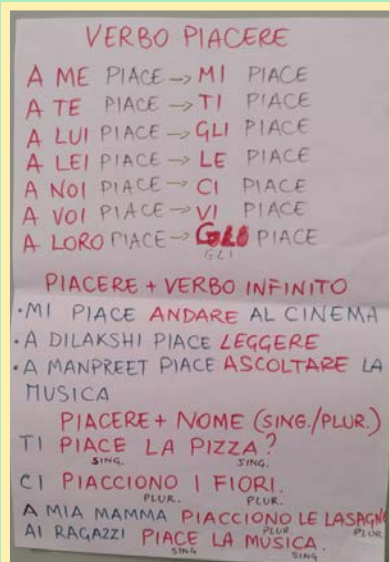 VERBO PIACERE
A ME PIACE → MI PIACE
A TE PIACE → TI PIACE
A LUI PIACE → GLI PIACE
A LEI PIACE → LE PIACE
A NOI PIACE → CI PIACE
A VOI PIACE → VI PIACE
A LORO PIACE → GLI PIACE
GLI
PIACERE + VERBO INFINITO
·MI PIACE ANDARE AL CINEMA
·A DILAKSHI PIACE LEGGERE
·A MANPREET PIACE ASCOLTARE LA
MUSICA
PIACERE + NOME (SING./PLUR.)
TI PIACE LA PIZZA?
SING. SING.
CI PIACCIONO I FIORI.
PLUR. PLUR.
A MIA MAMMA PIACCIONO LE LASAGNE
PLUR. PLUR
AI RAGAZZI PIACE LA MUSICA.
SING SING